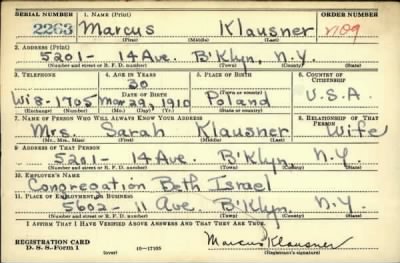 SERIAL NUMBER 1. NAME (Print) ORDER NUMBER
2263 Marcus Klausner 1109
(First) (Middle) (Last)
2. ADDRESS (Print)
5201- 14 Ave. B'Klyn, N.Y.
(Number and street or R. F. D. number) (Town) (County) (State)
3. TELEPHONE 4. AGE IN YEARS 5. PLACE OF BIRTH 6. COUNTRY OF CITIZENSHIP
30
DATE OF BIRTH (Town or county)
Wi 8-1705 Mar. 29, 1910 Poland U.S.A.
(Exchange) (Number) (Mo.) (Day) (Yr.) (State or country)
7. NAME OF PERSON WHO WILL ALWAYS KNOW YOUR ADDRESS 8. RELATIONSHIP OF THAT PERSON
Mrs. Sarah Klausner Wife
(Mr., Mrs., Miss) (First) (Middle) (Last)
9. ADDRESS OF THAT PERSON
5201- 14 Ave. B'Klyn, N.Y.
(Number and street or R. F. D. number) (Town) (County) (State)
10. EMPLOYER'S NAME
Congregation Beth Israel
11. PLACE OF EMPLOYMENT OR BUSINESS
5602- 11 Ave. B'Klyn, N.Y.
(Number and street or R. F. D. number) (Town) (County) (State)
I AFFIRM THAT I HAVE VERIFIED ABOVE ANSWERS AND THAT THEY ARE TRUE.
REGISTRATION CARD Marcus Klausner
D. S. S. Form 1 (over) 16-17105 (Registrant's signature)